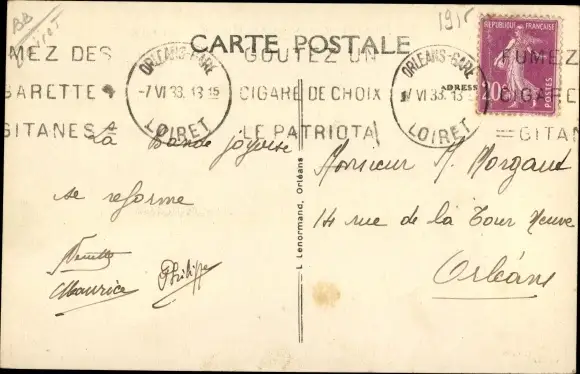 BB
1915
CARTE POSTALE
FUMEZ DES
CIGARETTES
GITANES
ORLEANS-GARE
-7 VI 33. 13 15
LOIRET
GOUTEZ UN
CIGARE DE CHOIX
LE PATRIOTA
ORLEANS-GARE
VI 33. 13
LOIRET
FUMEZ
CIGARE
GITAN
REPUBLIQUE FRANÇAISE
POSTES
ADRESSE
La Bande joyeuse
se reforme
Maurice
Philippe
L. Lenormand, Orléans
Monsieur M. Morgand
14 rue de la Tour Neuve
Orléans